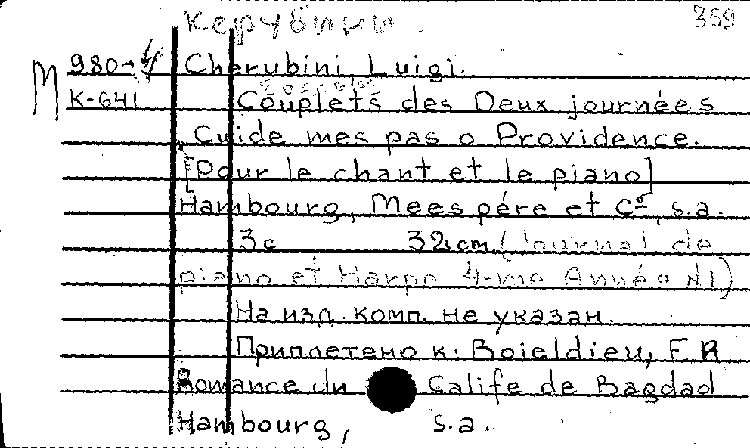 Керубини. 359
980-4 Cherubini, Luigi.
M K-641 Couplets des Deux journées
Guide mes pas o Providence.
[Pour le chant et le piano]
Hambourg, Mees pére et Cº, s.a.
3c 32cm (Journal de
piano et Harpe 4-me Année N1)
На изд. комп. не указан.
Приплетено к: Boieldieu, F.A
Romance du Calife de Bagdad
Hambourg, s.a.